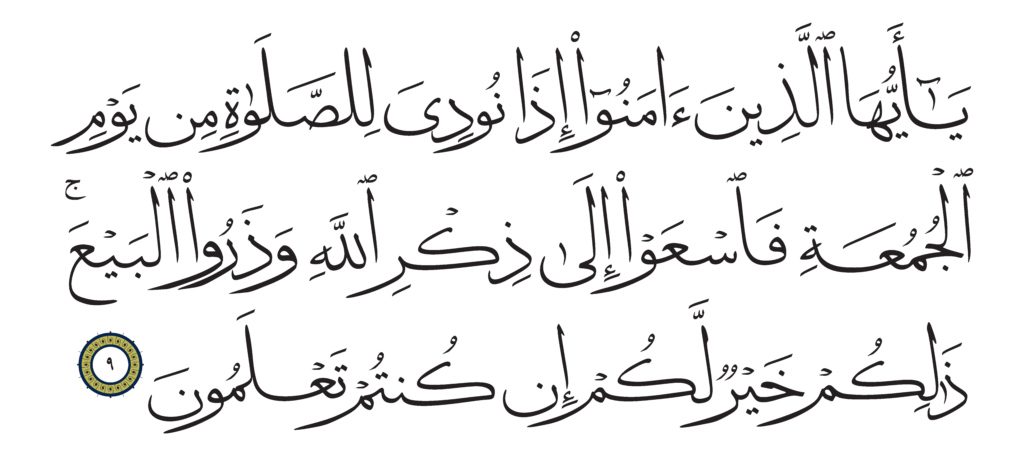 يَـٰٓأَيُّهَا ٱلَّذِينَ ءَامَنُوٓا۟ إِذَا نُودِىَ لِلصَّلَوٰةِ مِن يَوْمِ
ٱلْجُمُعَةِ فَٱسْعَوْا۟ إِلَىٰ ذِكْرِ ٱللَّهِ وَذَرُوا۟ ٱلْبَيْعَ ۚ
ذَٰلِكُمْ خَيْرٌ لَّكُمْ إِن كُنتُمْ تَعْلَمُونَ ٩